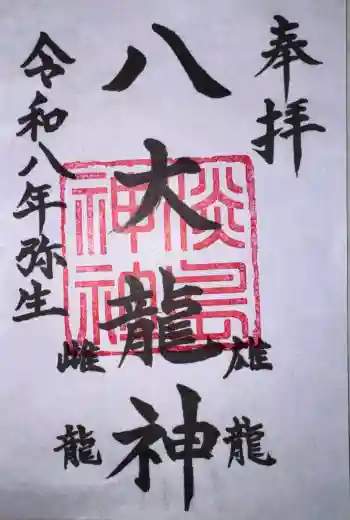 奉拝
八大龍神
雄龍
雌龍
淡島
神社
令和八年弥生